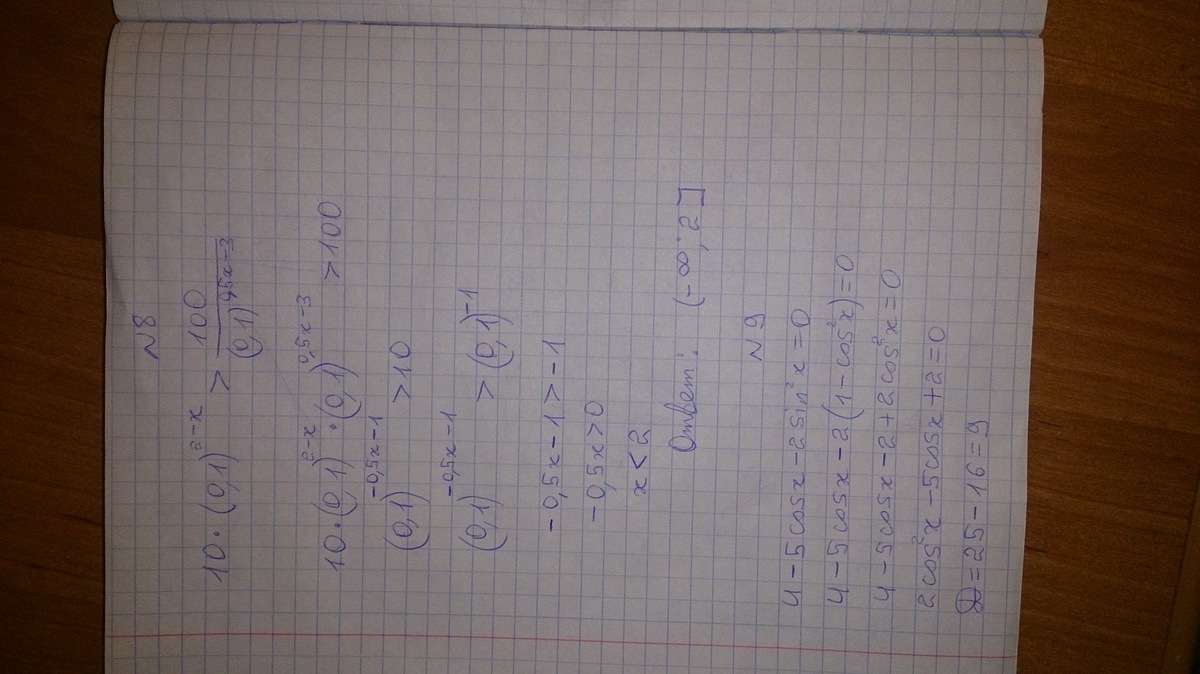 N8
10·(0,1)^{2-x} > \frac{100}{(0,1)^{0,5x-3}}
10·(0,1)^{2-x}·(0,1)^{0,5x-3} >100
(0,1)^{-0,5x-1} >10
(0,1)^{-0,5x-1} >(0,1)^{-1}
-0,5x-1>-1
-0,5x>0
x<2
Ответ: (-∞; 2]
N9
4-5cosx-2sin²x=0
4-5cosx-2(1-cos²x)=0
4-5cosx-2+2cos²x=0
2cos²x-5cosx+2=0
D=25-16=9